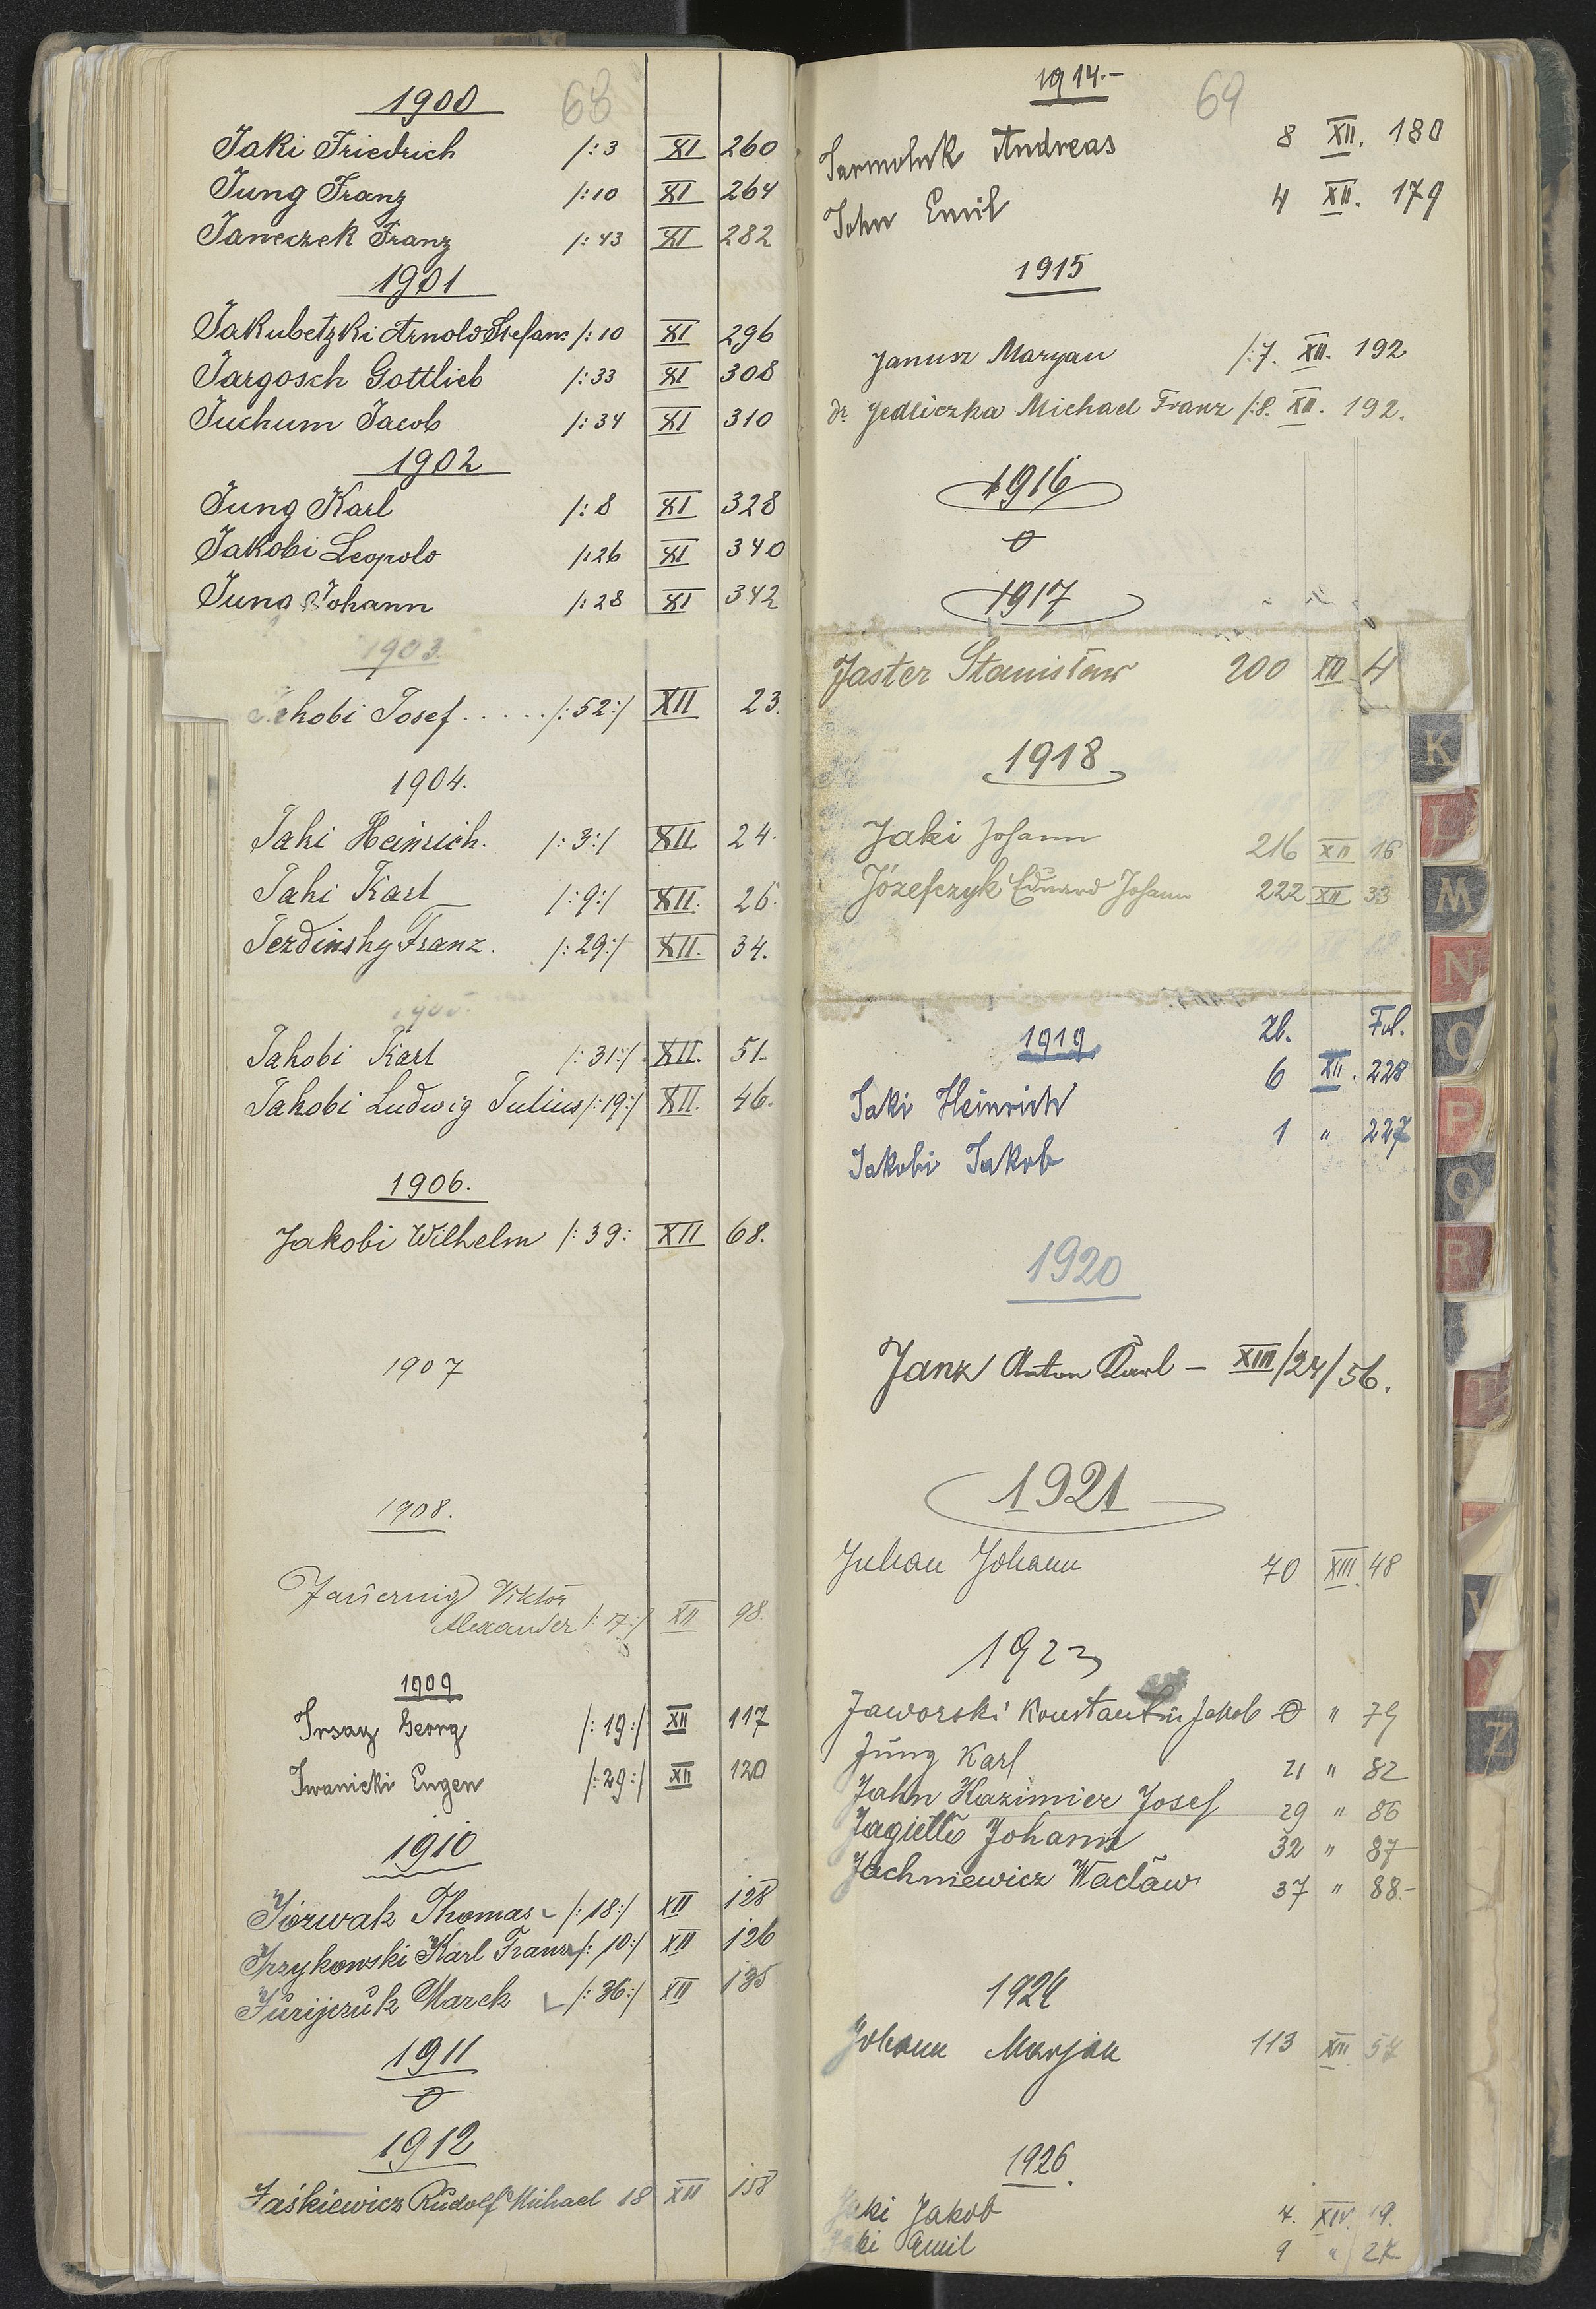 68
1900
Jaki Friedrich /:3 XI 260
Jung Franz /:10 XI 264
Janeczek Franz /:43 XI 282
1901
Jakubetzki Arnold Stefan /:10 XI 296
Jargosch Gottlieb /:33 XI 308
Juchum Jacob /:34 XI 310
1902
Jung Karl /:8 XI 328
Jakobi Leopold /:26 XI 340
Jung Johann /:28 XI 342
1903.
Jakobi Josef...... /:52:/ XII 23.
1904.
Jaki Heinrich. /:3:/ XII. 24.
Jaki Karl /:9:/ XII. 26.
Jerdinsky Franz. /:29:/ XII. 34.
1905.
Jakobi Karl /:31:/ XII. 51.
Jakobi Ludwig Julius /:19:/ XII. 46.
1906.
Jakobi Wilhelm /:39: XII 68.
1907
1908.
Viktor
Alexander /:17:/ XII 98.
1909
Irsay Georg /:19:/ XII 117
Iwanicki Eugen /:29:/ XII 120
1910
Józwak Thomas /:18:/ XII 128
Irzykowski Karl Franz /:10:/ XII 126
Jurijczuk Marek /:36:/ XII 135
1911
0
1912
Jaśkiewicz Rudolf Michael 18 XII 158
69
1914.-
Jarmoluk Andreas 8 XII. 180
John Emil 4 XII. 179
1915
Janusz Maryan /:7. XII. 192
dr Jedliczka Michael Franz /:8. XII. 192.
1916
0
1917
Jaster Stanisław 200 XIII 4
1918
Jaki Johann 216 XII 16
Józefczyk Eduard Johann 222 XII 33
1919 Zl. Fol.
Jaki Heinrich 6 XII. 228
Jakobi Jakob 1 " 227
1920
Janz Anton Karl - XIII/24/56.
1921
Juhan Johann 70 XIII. 48
1923
Jaworski Konstantin Jakob 0 " 79
Jung Karl 21 " 82
Jahn Kazimier Josef 29 " 86
Jagiełło Johann 32 " 87
Jachniewicz Wacław 37 " 88.-
1924
Johann Marjan 113 XIII 57
1926
Jaki Jakob 7. XIV. 19.
Jaki Emil 9 " 27
K
L
M
N
O
P
Q
R
Z